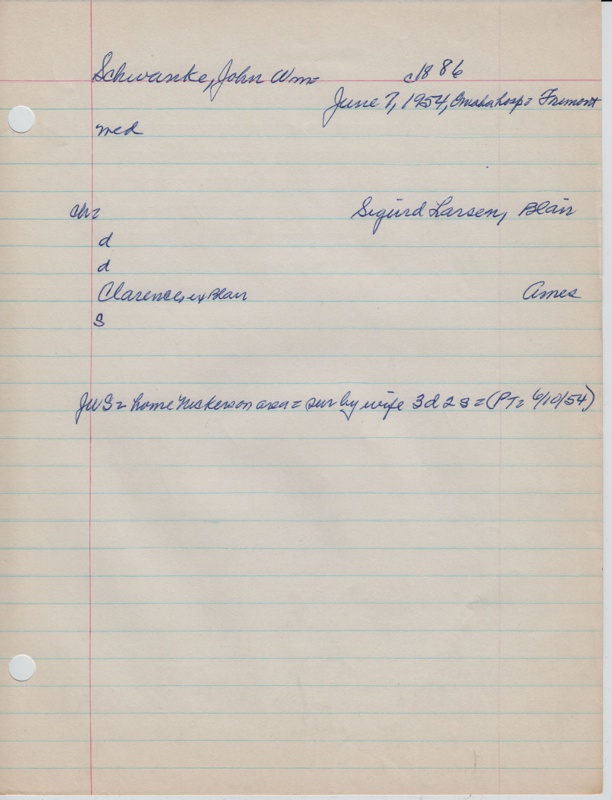 Schwanke, John Wm= c1886
June 7, 1954, Omaha hosp= Fremont
med
ch= Sigurd Larsen, Blair
d
d
Clarence, ex Blair Ames
S
JWS= home Nickerson area= sur by wife 3d 2s = (PT= 6/10/54)